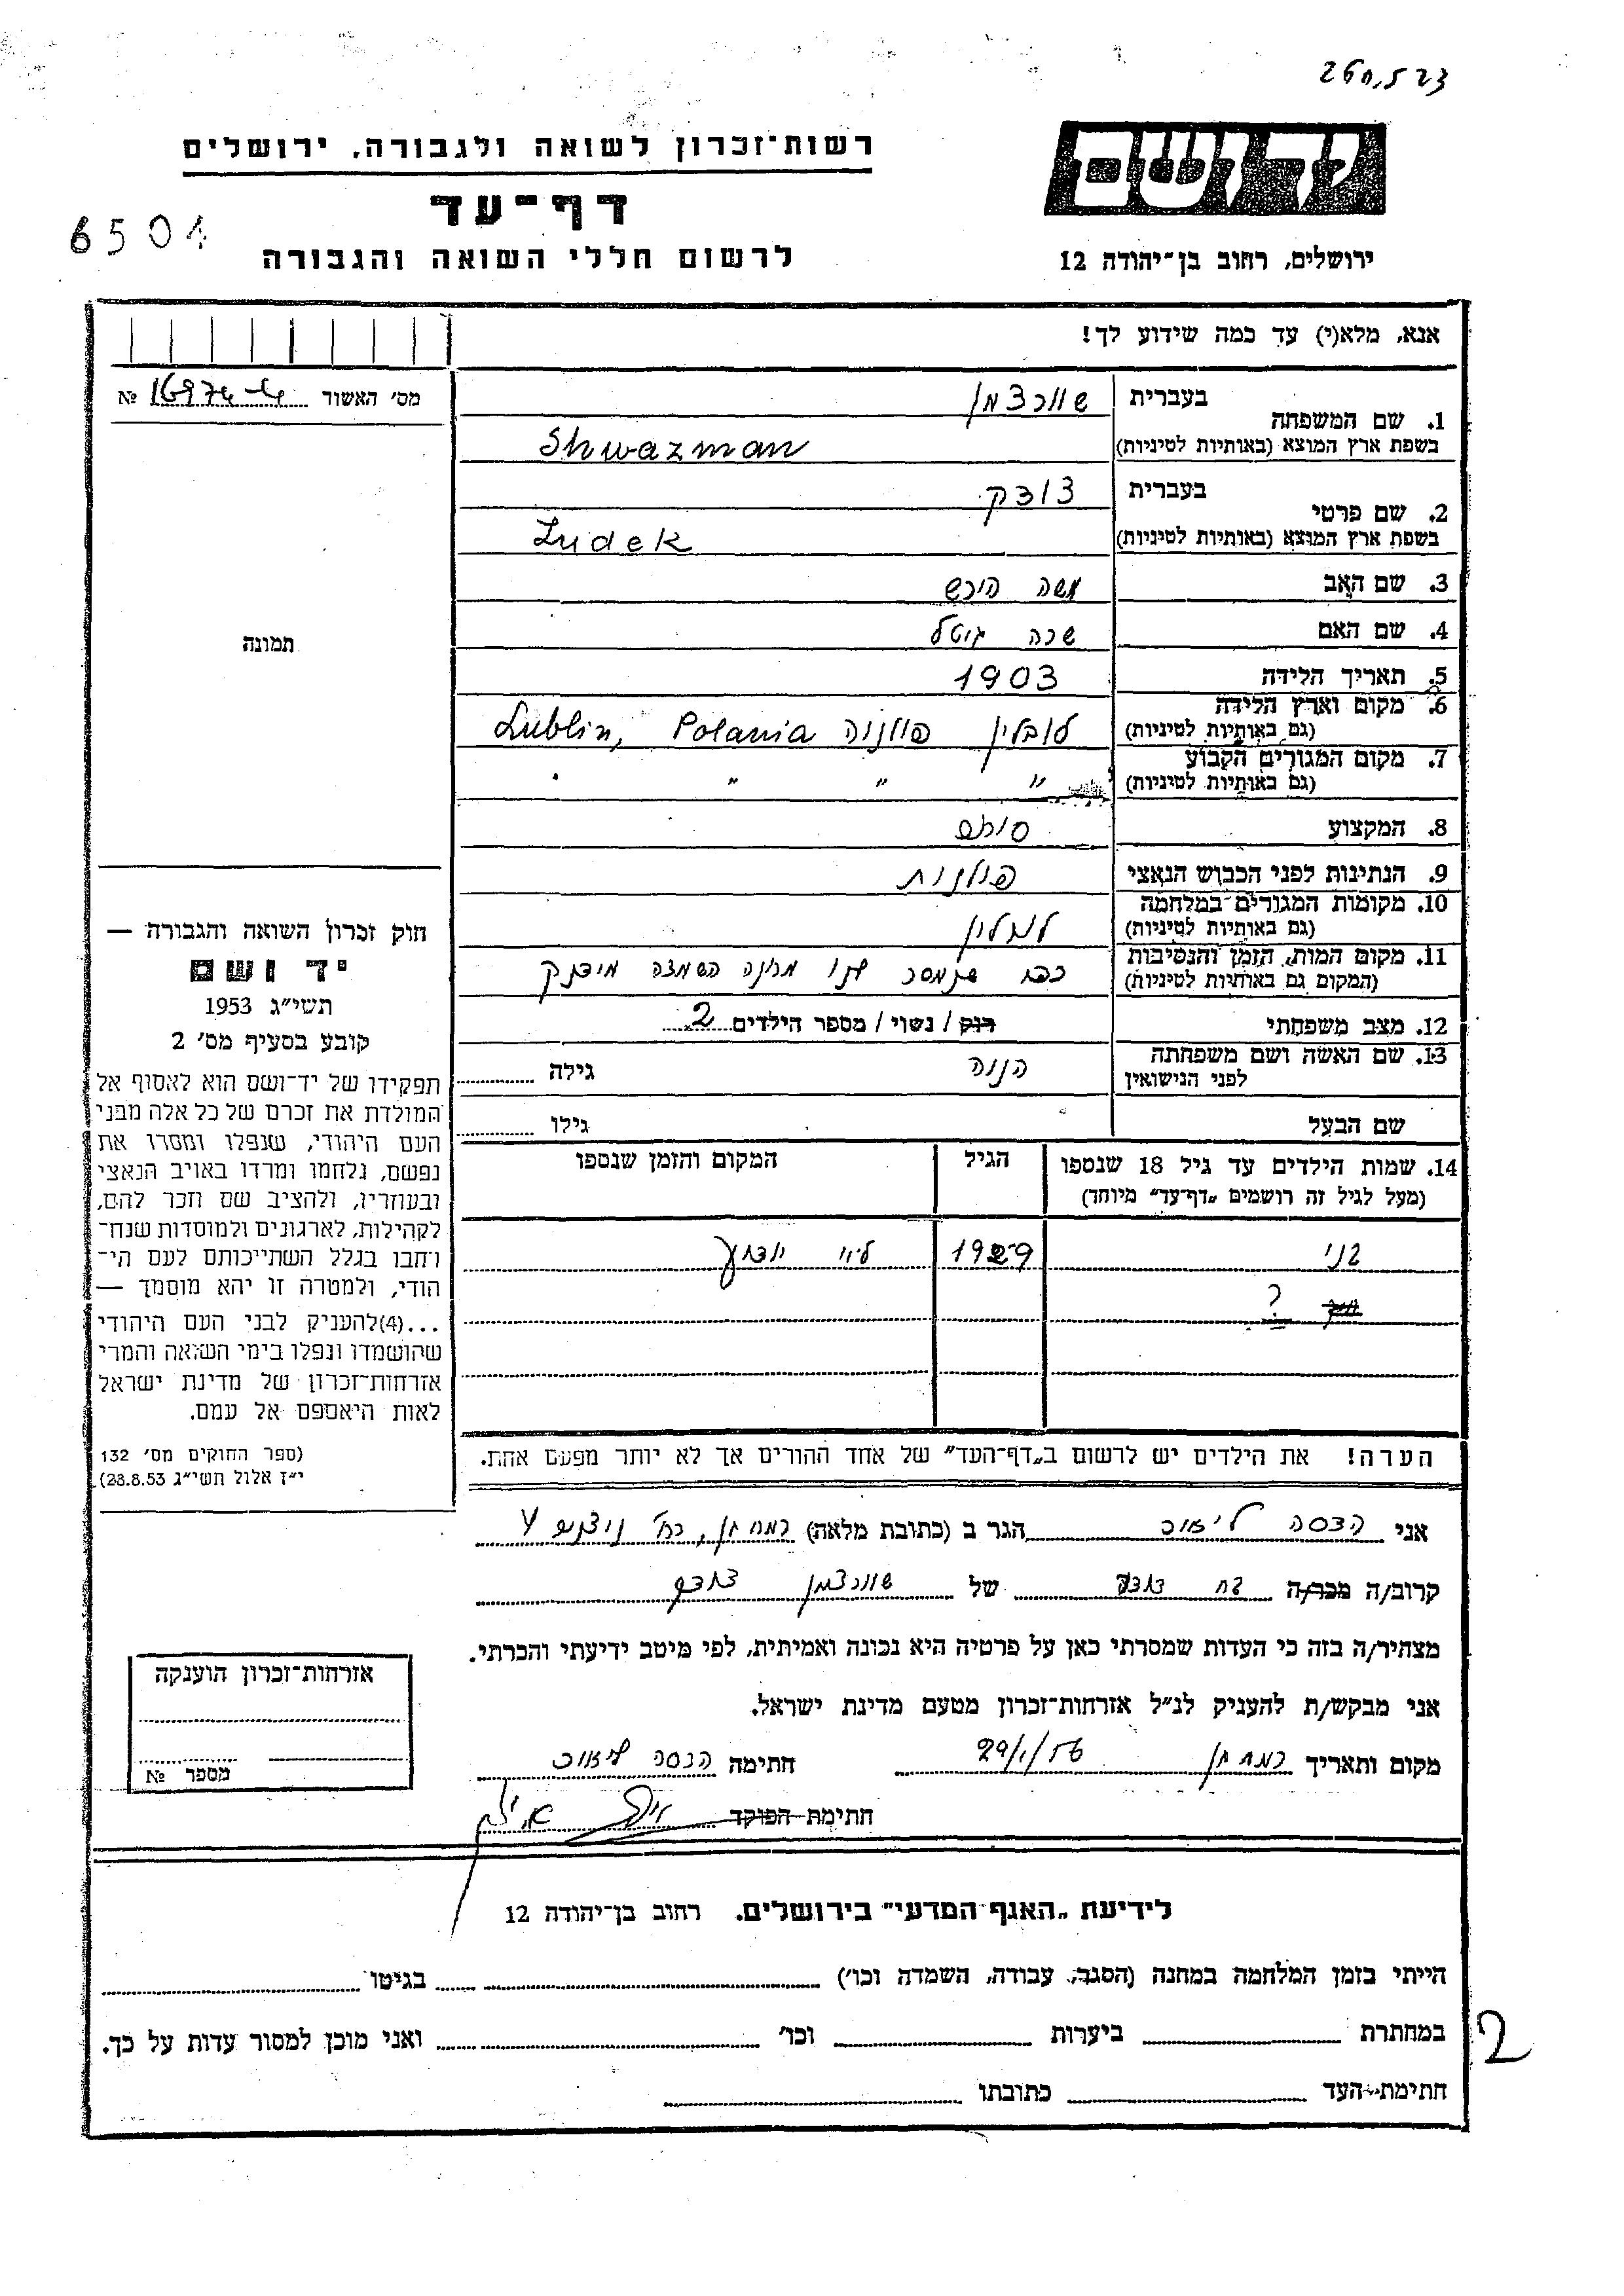 260,523
יד ושם
רשות־זכרון לשואה ולגבורה, ירושלים
דף־עד
6501
לרשום חללי השואה והגבורה
ירושלים, רחוב בן־יהודה 12
אנא, מלא(י) עד כמה שידוע לך!
מס׳ האשור № 16974
1. שם המשפחה בעברית שוורצמן
בשפת ארץ המוצא (באותיות לטיניות) Shwazman
2. שם פרטי בעברית צודק
בשפת ארץ המוצא (באותיות לטיניות) Zudek
3. שם האב משה הירש
4. שם האם שרה גיטל
5. תאריך הלידה 1903
6. מקום וארץ הלידה (גם באותיות לטיניות) לובלין פולניה Lublin, Polania
7. מקום המגורים הקבוע (גם באותיות לטיניות) " " "
8. המקצוע סוחר
9. הנתינות לפני הכבוש הנאצי פולנית
10. מקומות המגורים במלחמה (גם באותיות לטיניות) לובלין
11. מקום המות, הזמן והנסיבות (המקום גם באותיות לטיניות) כפי שנמסר לנו מחנה השמדה מידנק
12. מצב משפחתי רווק / נשוי / מספר הילדים 2
13. שם האשה ושם משפחתה לפני הנישואין חנה גילה
שם הבעל גילו
14. שמות הילדים עד גיל 18 שנספו (מעל לגיל זה רושמים „דף־עד״ מיוחד) הגיל המקום והזמן שנספו
בני 1929 לא ידוע
?
הערה! את הילדים יש לרשום ב„דף־העד״ של אחד ההורים אך לא יותר מפעם אחת.
תמונה
חוק זכרון השואה והגבורה —
יד ושם
תשי״ג 1953
קובע בסעיף מס׳ 2
תפקידו של יד־ושם הוא לאסוף אל
המולדת את זכרם של כל אלה מבני
העם היהודי, שנפלו ומסרו את
נפשם, נלחמו ומרדו באויב הנאצי
ובעוזריו, ולהציב שם וזכר להם,
לקהילות, לארגונים ולמוסדות שנח־
רבו בגלל השתייכותם לעם הי־
הודי, ולמטרה זו יהא מוסמך —
...(4)להעניק לבני העם היהודי
שהושמדו ונפלו בימי השואה והמרי
אזרחות־זכרון של מדינת ישראל
לאות היאספם אל עמם.
(ספר החוקים מס׳ 132
י״ז אלול תשי״ג 28.8.53)
אני הדסה הגר ב (כתובת מלאה) רמת גן,
קרוב/ה מכר/ה של שוורצמן צודק
מצהיר/ה בזה כי העדות שמסרתי כאן על פרטיה היא נכונה ואמיתית, לפי מיטב ידיעתי והכרתי.
אני מבקש/ת להעניק לנ״ל אזרחות־זכרון מטעם מדינת ישראל.
מקום ותאריך רמת גן 29/1/56 חתימה הדסה
חתימת הפוקד
אזרחות־זכרון הוענקה
מספר №
לידיעת „האגף המדעי״ בירושלים, רחוב בן־יהודה 12
הייתי בזמן המלחמה במחנה (הסגה, עבודה, השמדה וכו׳) בגיטו
במחתרת ביערות וכו׳ ואני מוכן למסור עדות על כך.
חתימת־העד כתובתו
2